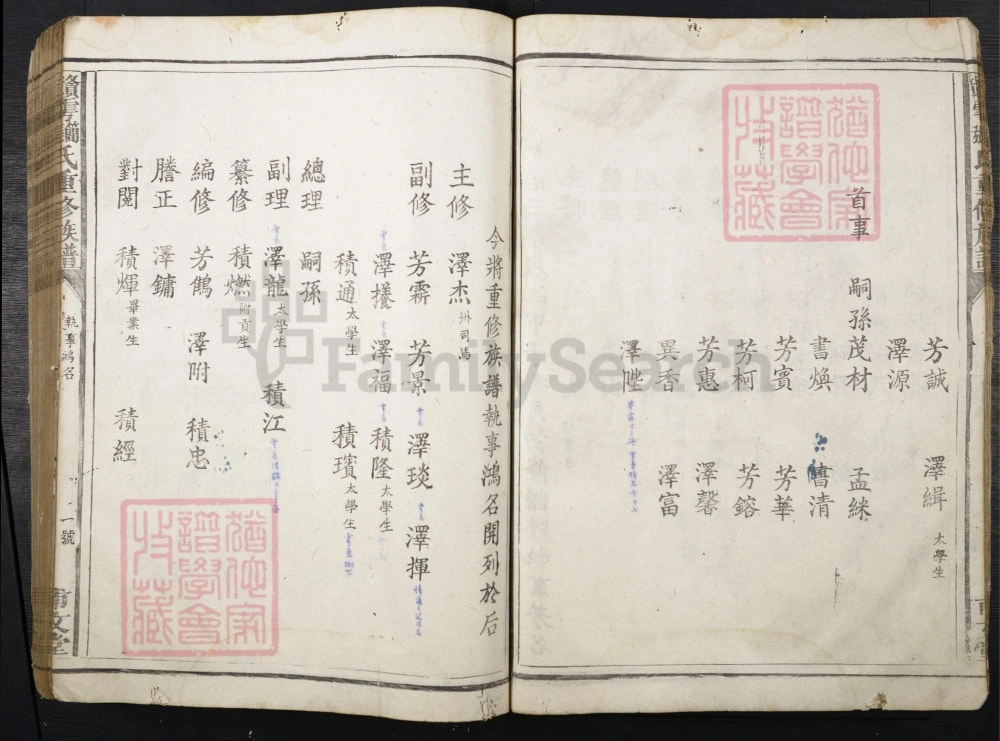 猶他家
譜學會
特藏
芳誠 澤緝 太學生
澤源
首事 嗣孫 茂材
書煥 書清
芳賓 芳華
芳柯 芳鎔
芳惠 澤馨
異香 澤富
澤陞
今將重修族譜執事鴻名開列於后
主修 澤杰 州司馬
副修 芳霖 芳景 澤琰 澤揮
澤福 積隆 太學生
積通 太學生 積璸 太學生
總理 嗣孫
副理 澤龍 太學生 積江
纂修 積燃 附貢生
編修 澤附 積忠
謄正 澤鏞
對閱 積煇 畢業生 積經
氏重修族譜 執事鴻名 一號 文堂
猶他家
譜學會
特藏
FamilySearch